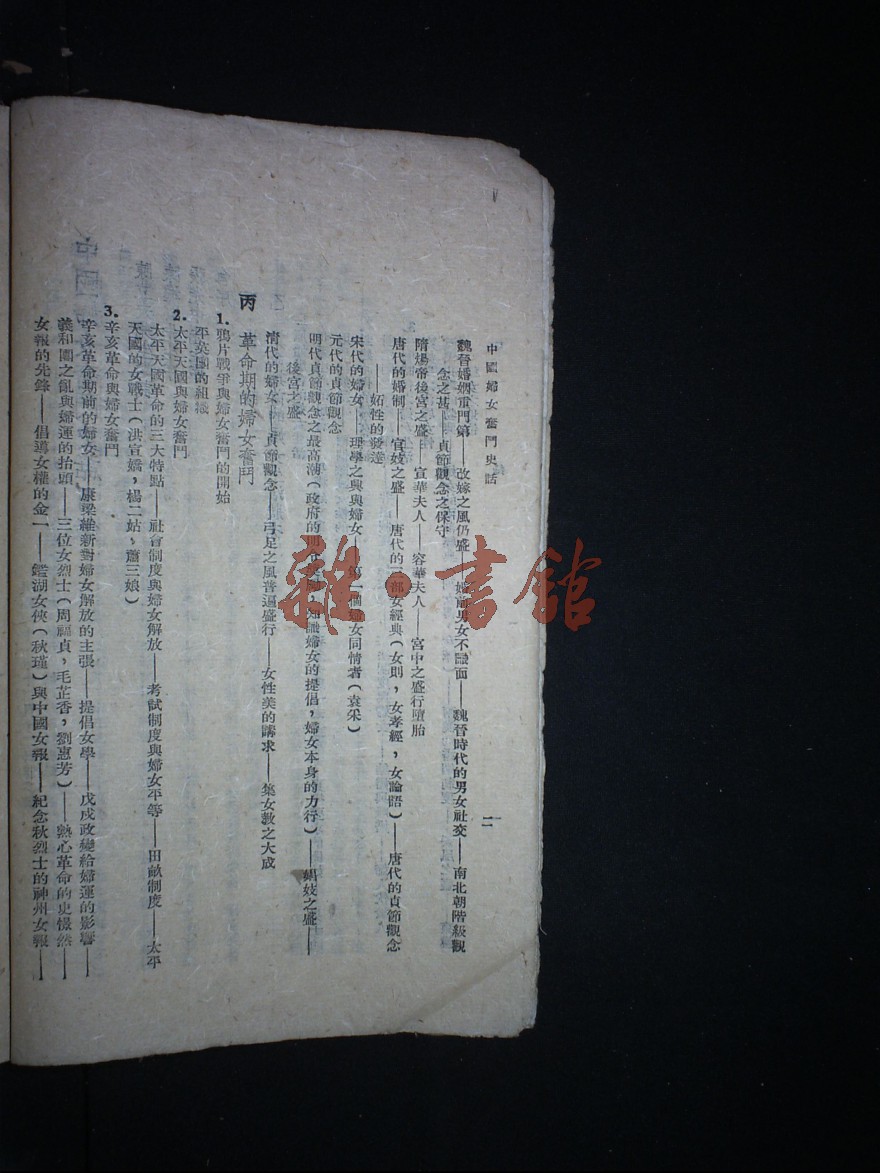 中國婦女奮鬥史話
二
魏晉婚姻重門第——改嫁之風仍盛——婚前男女不謀面——魏晉時代的男女社交——南北朝階級觀
念之甚——貞節觀念之保守
隋煬帝後宮之盛——宣華夫人——容華夫人——宮中之盛行墮胎
唐代的婚制——官妓之盛——唐代的一部女經典(女則，女孝經，女論語)——唐代的貞節觀念
——妬性的發達
宋代的婦女——理學之興與婦女——第一個婦女同情者(袁采)
元代的貞節觀念
明代貞節觀念之最高潮(政府的，知識婦女的提倡，婦女本身的力行)——娼妓之盛——
後宮之盛
清代的婦女——貞節觀念——弓足之風普遍盛行——女性美的講求——集女教之大成
丙 革命期的婦女奮鬥
1. 鴉片戰爭與婦女奮鬥的開始
平英團的組織
2. 太平天國與婦女奮鬥
太平天國革命的三大特點——社會制度與婦女解放——考試制度與婦女平等——田畝制度——太平
天國的女戰士(洪宣嬌，楊二姑，蕭三娘)
3. 辛亥革命與婦女奮鬥
辛亥革命期前的婦女——康梁維新對婦女解放的主張——提倡女學——戊戌政變給婦運的影響——
義和團之亂與婦運的抬頭——三位女烈士(周福貞，毛芷香，劉惠芳)——熱心革命的史憬然——
女報的先鋒——倡導女權的金一——鑑湖女俠(秋瑾)與中國女報——紀念秋烈士的神州女報——
雜·書館